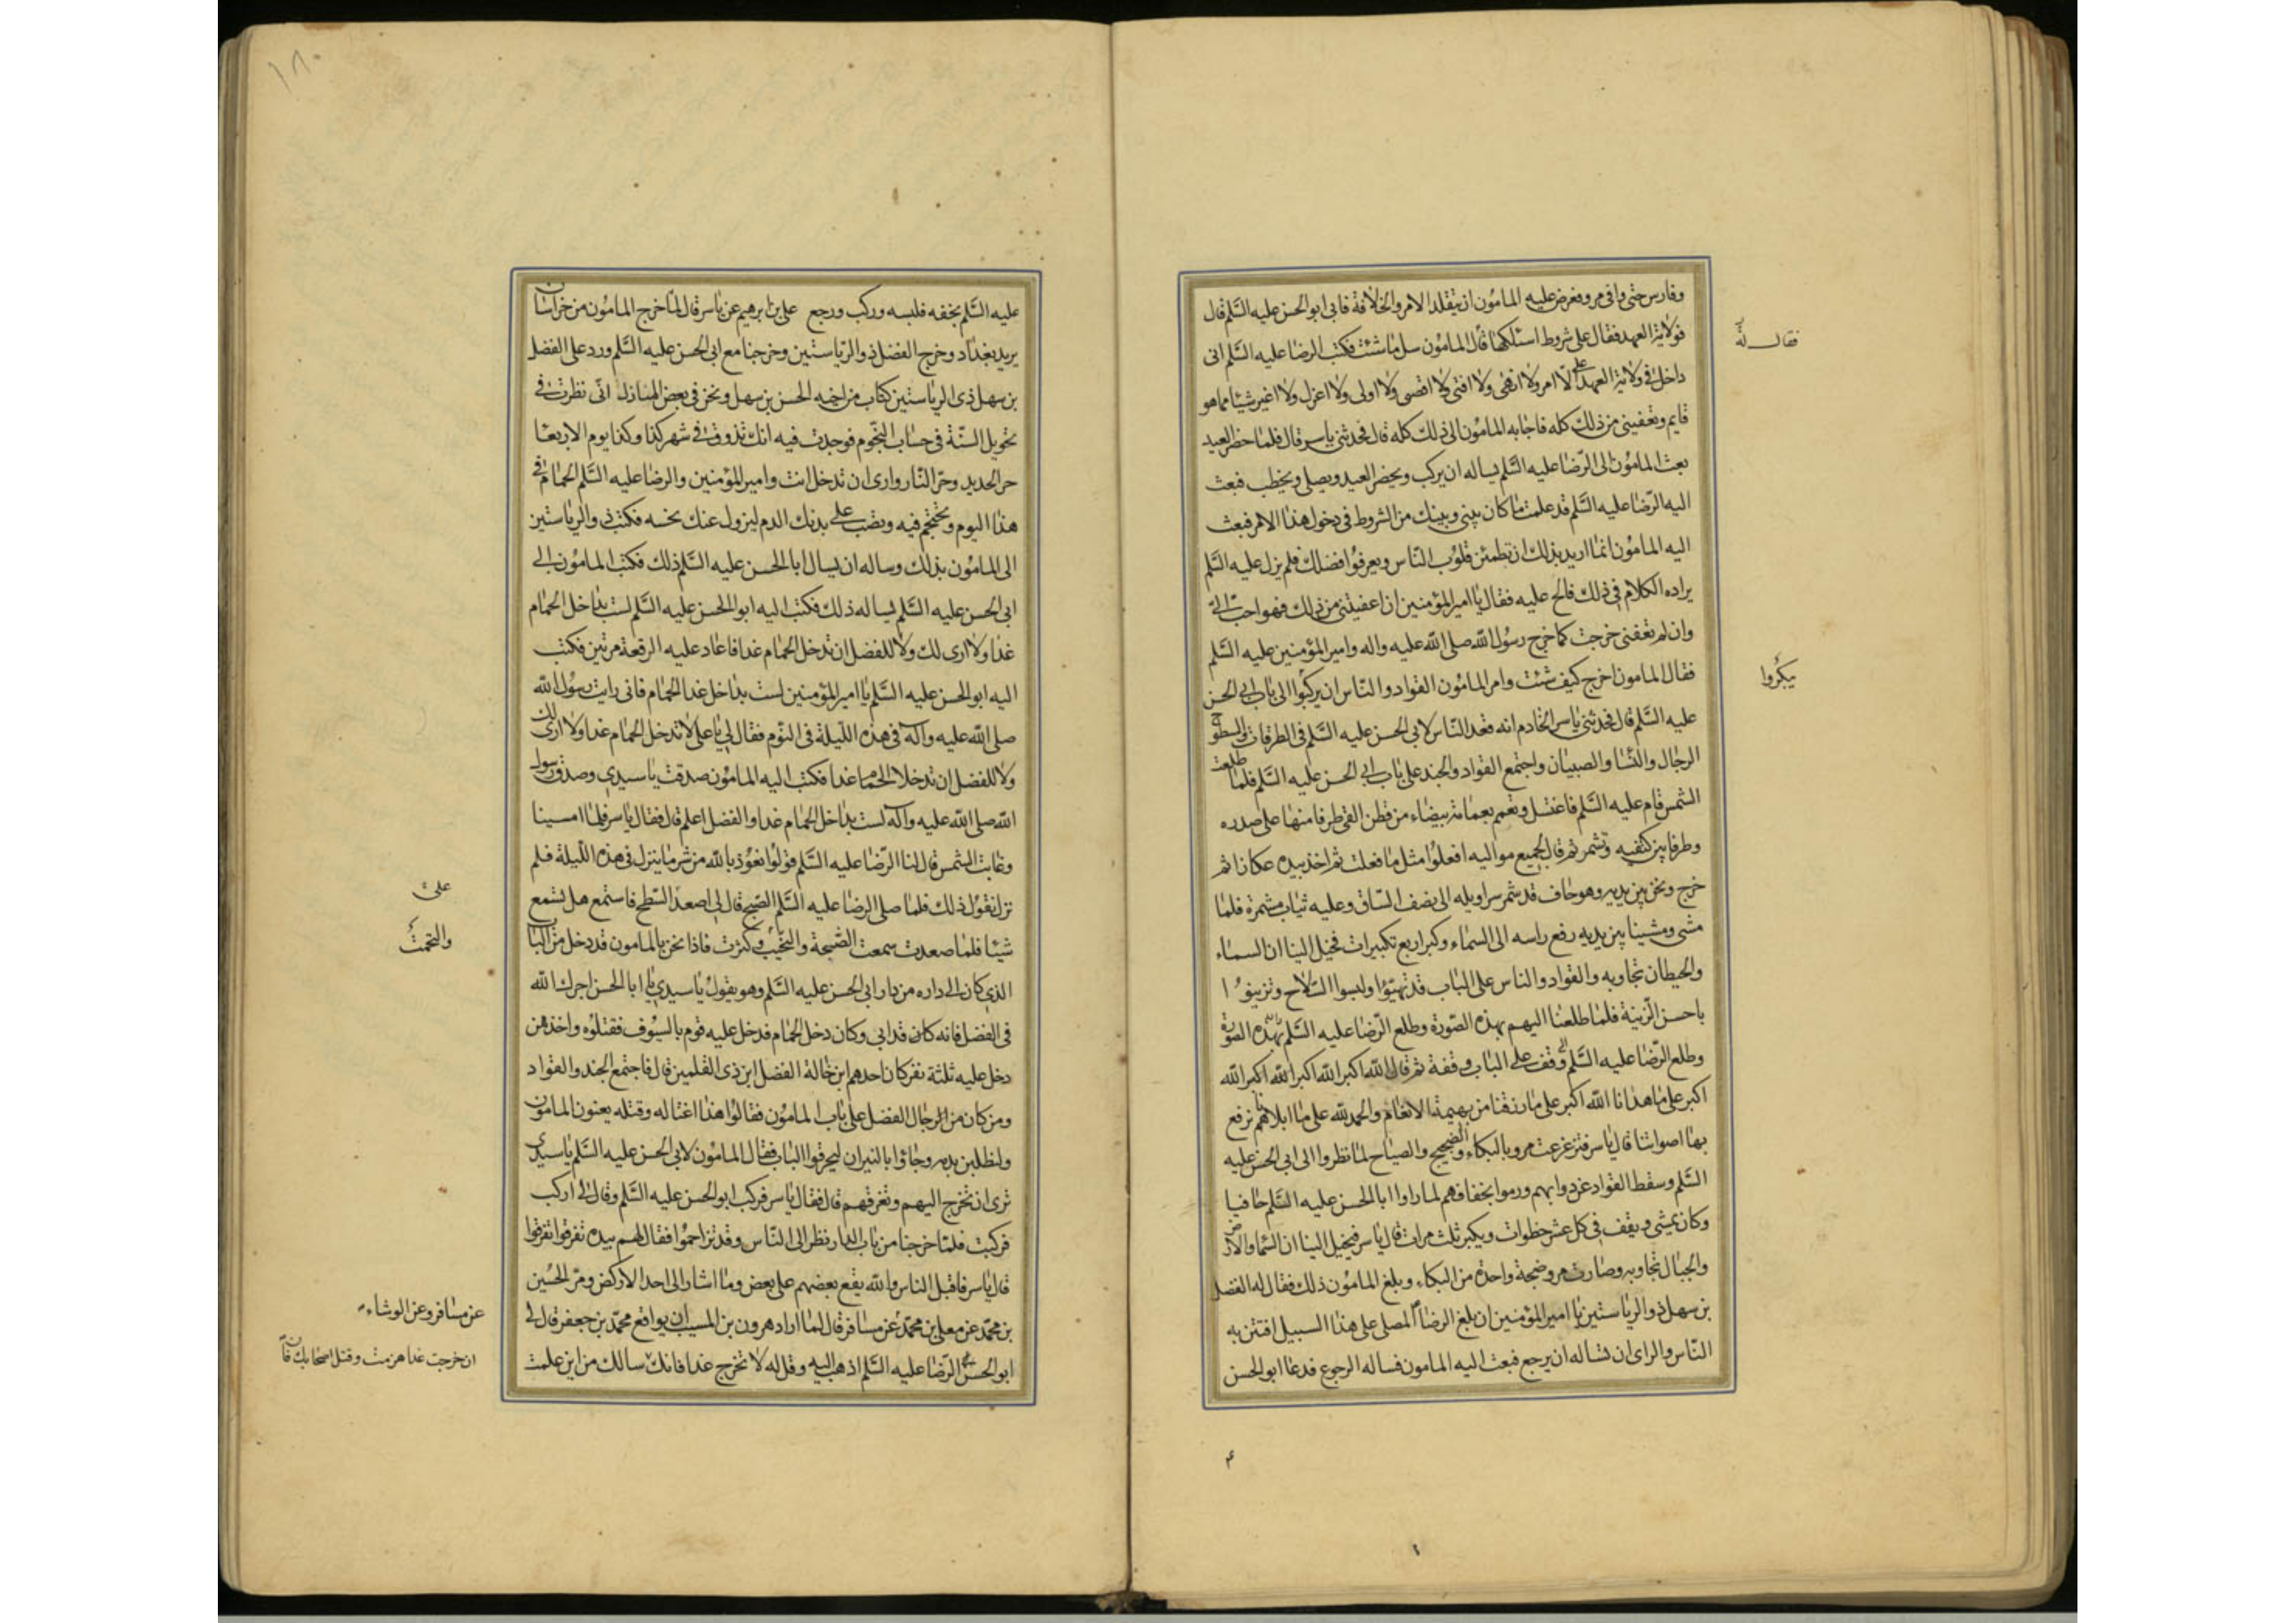 وفارس حتى وافى مرو فعرض عليه المامون ان يتقلد الامر والخلافة فابى ابو الحسن عليه السلم قال
فولاية العهد فقال على شروط اسئلكها قال المامون سل ما شئت فكتب الرضا عليه السلم انى
داخل فى ولاية العهد على الا امر ولا انهى ولا افتى ولا اقضى ولا اولى ولا اعزل ولا اغير شيئا مما هو
قايم وتعفينى من ذلك كله فاجابه المامون الى ذلك كله قال فحدثنى ياسر قال فلما حضر العيد
بعث المامون الى الرضا عليه السلم يساله ان يركب ويحضر العيد ويصلى ويخطب فبعث
اليه الرضا عليه السلم قد علمت ما كان بينى وبينك من الشروط فى دخول هذا الامر فبعث
اليه المامون انما اريد بذلك ان تطمئن قلوب الناس ويعرفوا فضلك فلم يزل عليه السلم
يراده الكلام فى ذلك فالح عليه فقال يا امير المؤمنين ان اعفيتنى من ذلك فهو احب الى
وان لم تعفنى خرجت كما خرج رسول الله صلى الله عليه واله وامير المؤمنين عليه السلم
فقال المامون اخرج كيف شئت وامر المامون القواد والناس ان يركبوا الى باب ابى الحسن
عليه السلم قال فحدثنى ياسر الخادم انه قعد الناس لابى الحسن عليه السلم فى الطرقات والسطوح
الرجال والنسا والصبيان واجتمع القواد والجند على باب ابى الحسن عليه السلم فلما طلعت
الشمس قام عليه السلم فاغتسل وتعمم بعمامة بيضاء من قطن القى طرفا منها على صدره
وطرفا بين كتفيه وتشمر ثم قال لجميع مواليه افعلوا مثل ما فعلت ثم اخذ بيده عكازا ثم
خرج ونحن بين يديه وهو حاف قد شمر سراويله الى نصف الساق وعليه ثياب مشمرة فلما
مشى ومشينا بين يديه رفع راسه الى السماء وكبر اربع تكبيرات فخيل الينا ان السماء
والحيطان تجاوبه والقواد والناس على الباب قد تهيئوا ولبسوا السلاح وتزينوا
باحسن الزينة فلما طلعنا اليهم بهذه الصورة وطلع الرضا عليه السلم بهذه الصورة
وطلع الرضا عليه السلم وقف على الباب وقفة ثم قال الله اكبر الله اكبر الله اكبر الله
اكبر على ما هدانا الله اكبر على ما رزقنا من بهيمة الانعام والحمد لله على ما ابلانا نرفع
بها اصواتنا قال ياسر فتزعزعت مرو بالبكاء والضجيج والصياح لما نظروا الى ابى الحسن عليه
السلم وسقط القواد عن دوابهم ورموا بخفافهم لما راوا ابا الحسن عليه السلم حافيا
وكان يمشى ويقف فى كل عشر خطوات ويكبر ثلث مرات قال ياسر فيخيل الينا ان السما والارض
والجبال تجاوبه وصارت مرو ضجة واحدة من البكاء وبلغ المامون ذلك فقال له الفضل
بن سهل ذو الرياستين يا امير المؤمنين ان بلغ الرضا المصلى على هذا السبيل افتتن به
الناس والراى ان تساله ان يرجع فبعث اليه المامون فساله الرجوع فدعا ابو الحسن
فقال له
يبكروا
١٨٠
عليه السلم بخفه فلبسه وركب ورجع على بن ابرهيم عن ياسر قال لما خرج المامون من خراسان
يريد بغداد وخرج الفضل ذو الرياستين وخرجنا مع ابى الحسن عليه السلم ورد على الفضل
بن سهل ذى الرياستين كتاب من اخيه الحسن بن سهل ونحن فى بعض المنازل انى نظرت فى
تحويل السنة فى حساب النجوم فوجدت فيه انك تذوق فى شهر كذا وكذا يوم الاربعا
حر الحديد وحر النار وارى ان تدخل انت وامير المؤمنين والرضا عليه السلم الحمام فى
هذا اليوم وتحتجم فيه وتصب على بدنك الدم ليزول عنك نحسه فكتب ذو الرياستين
الى المامون بذلك وساله ان يسال ابا الحسن عليه السلم ذلك فكتب المامون الى
ابى الحسن عليه السلم يساله ذلك فكتب اليه ابو الحسن عليه السلم لست بداخل الحمام
غدا ولا ارى لك ولا للفضل ان تدخل الحمام غدا فاعاد عليه الرقعة مرتين فكتب
اليه ابو الحسن عليه السلم يا امير المؤمنين لست بداخل غدا الحمام فانى رايت رسول الله
صلى الله عليه وآله فى هذه الليلة فى النوم فقال لى يا على لا تدخل الحمام غدا ولا ارى لك
ولا للفضل ان تدخلا الحمام غدا فكتب اليه المامون صدقت يا سيدى وصدق رسول
الله صلى الله عليه وآله لست بداخل الحمام غدا والفضل اعلم قال فقال ياسر فلما امسينا
وغابت الشمس قال لنا الرضا عليه السلم قولوا نعوذ بالله من شر ما ينزل فى هذه الليلة فلم
نزل نقول ذلك فلما صلى الرضا عليه السلم الصبح قال لى اصعد السطح فاستمع هل تسمع
شيئا فلما صعدت سمعت الضجة والنحيب وكثرت فاذا نحن بالمامون قد دخل من الباب
الذى كان الى داره من دار ابى الحسن عليه السلم وهو يقول يا سيدى يا ابا الحسن اجرك الله
فى الفضل فانه كان قد ابى وكان دخل الحمام فدخل عليه قوم بالسيوف فقتلوه واخذ من
دخل عليه ثلثة نفر كان احدهم ابن خالة الفضل ابن ذى القلمين قال فاجتمع الجند والقواد
ومن كان من الرجال الفضل على باب المامون فقالوا هذا اغتاله وقتله يعنون المامون
ولنطلبن بدمه وجاؤا بالنيران ليحرقوا الباب فقال المامون لابى الحسن عليه السلم يا سيدى
ترى ان تخرج اليهم وتفرقهم قال فقال ياسر فركب ابو الحسن عليه السلم وقال لى اركب
فركبت فلما خرجنا من باب الدار نظر الى الناس وقد تزاحموا فقال لهم بيده تفرقوا تفرقوا
قال ياسر فاقبل الناس والله يقع بعضهم على بعض وما اشار الى احد الا ركض ومر الحسين
بن محمد عن معلى بن محمد عن مسافر قال لما اراد هرون بن المسيب ان يواقع محمد بن جعفر قال لى
ابو الحسن الرضا عليه السلم اذهب اليه وقل له لا تخرج غدا فانك سالك من اين علمت
على
والتحمت
عن مسافر وعن الوشاء
ان خرجت غدا هزمت وقتل اصحابك فان